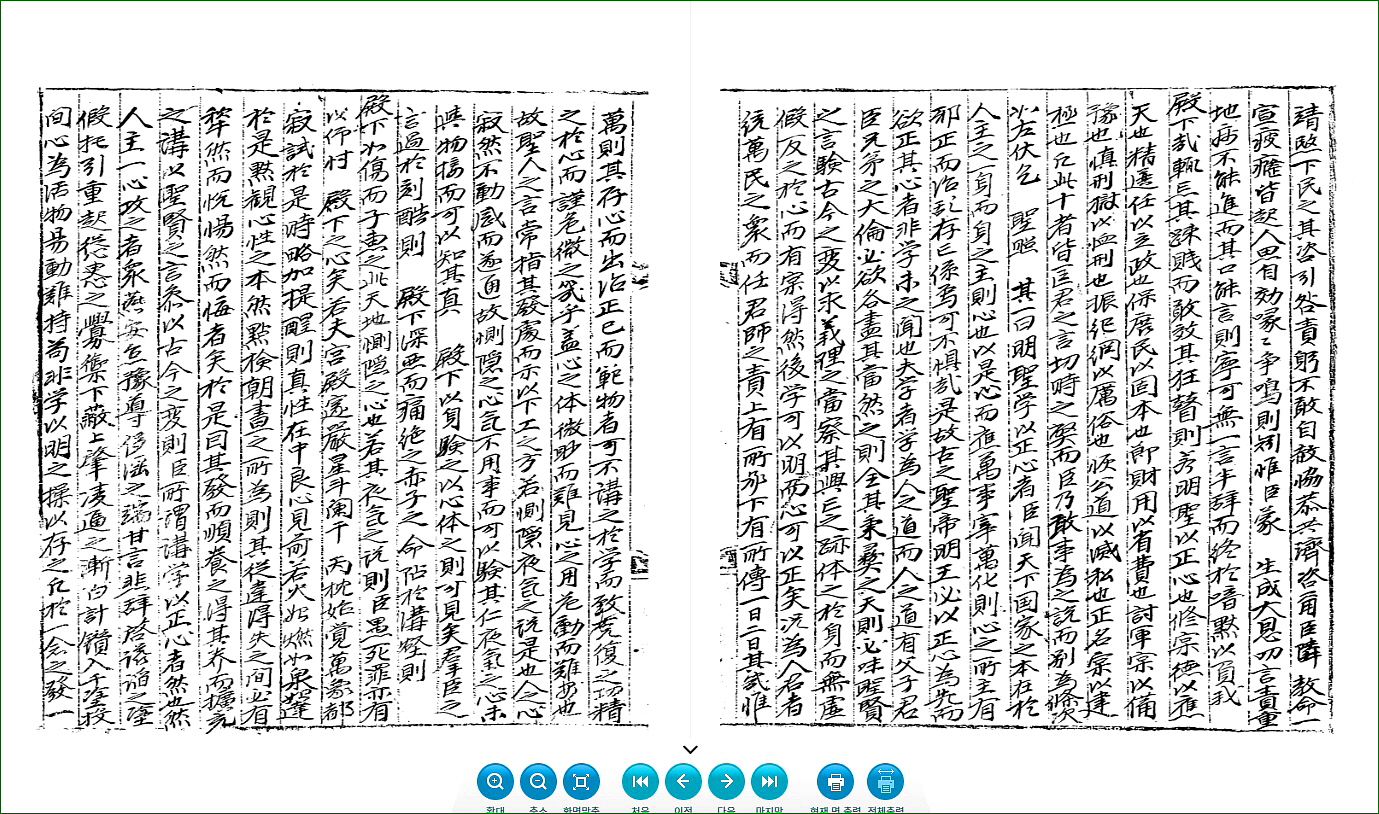 請 殿下民之其咨引咎責躬不敢自赦協恭共濟咨爾臣隣 教命一
宣疲癃皆起人思自効喙喙爭鳴則矧惟臣蒙 生成大恩切言責重
地病不能進而其口能言則寧可無一言半辭而終於喑默以負我
殿下哉輒忘其踈賤而敢效其狂瞽則 明聖以正心也修宗德以應
天也精選任以立政也保居民以固本也節財用以省費也討軍宗以備
豫也愼刑獄以恤刑也振紀綱以厲俗也恢公道以滅私也正名宗以建
極也凡此十者皆匡君之言切時之 而臣乃敢事爲之說而別爲條次
以右伏乞 聖照 其一曰明聖學以正心者臣聞天下国家之本在於
人主之一身而身之主則心也以是心而應萬事宰萬化則心之所主有
邪正而治乱存亡係焉可不惧哉是故古之聖帝明王必以正心為先而
欲正其心者非学未之聞也夫学者学為人之道而人之道有父子君
臣兄弟之大倫必欲各盡其當然之則全其秉彛之天則必味聖賢
之言驗古今之變以求義理之當察其興亡之跡体之於身而無虛
假反之於心而有宗得然後学可以明而心可以正矣况為人君者
統萬民之衆而任君師之責上有所承下有所傳一日二日其幾惟
萬則其存心而出治正己而範物者可不講之於学而致克復之功精
之於心而謹危微之幾乎盖心之体微眇而難見心之用危動而難安也
故聖人之言常指其發處而示以下工之方若惻隠夜氣之說是也人心
寂然不動感而遂通故惻隠之心氣不用事而可以驗其仁夜氣之心未
與物接而可以知其真 殿下以身驗之以心体之則可見矣羣臣之
言過於刻酷則 殿下深惡而痛絶之赤子之 命 於溝壑則
殿下如傷而子惠之此天地惻隠之心也若其夜氣之說則臣愚死罪亦有
以仰忖 殿下之心矣若夫宮殿邃嚴星斗闌干 丙枕始覚萬象都
寂試於是時略加提醒則真性在中良心見前若火始燃如泉始達
於是黙観心性之本然黙檢朝晝之所為則其從違得失之間必有
犂然而悅惕然而悔者矣於是因其發而順養之得其养而擴充
之講以聖賢之言叅以古今之变則臣所謂講学以正心者然也然
人主一心攻之者衆燕安怠豫導侈 之端甘言悲辭啓謟 之 
假托引重起慫恿之釁蒙下蔽上肇凌逼之漸百計鑽入千 投
間心為活物易動難持苟非学以明之操以存之凡於一念之發一
확대 축소 화면맞춤 처음 이전 다음 마지막 현재 면 출력 전체출력